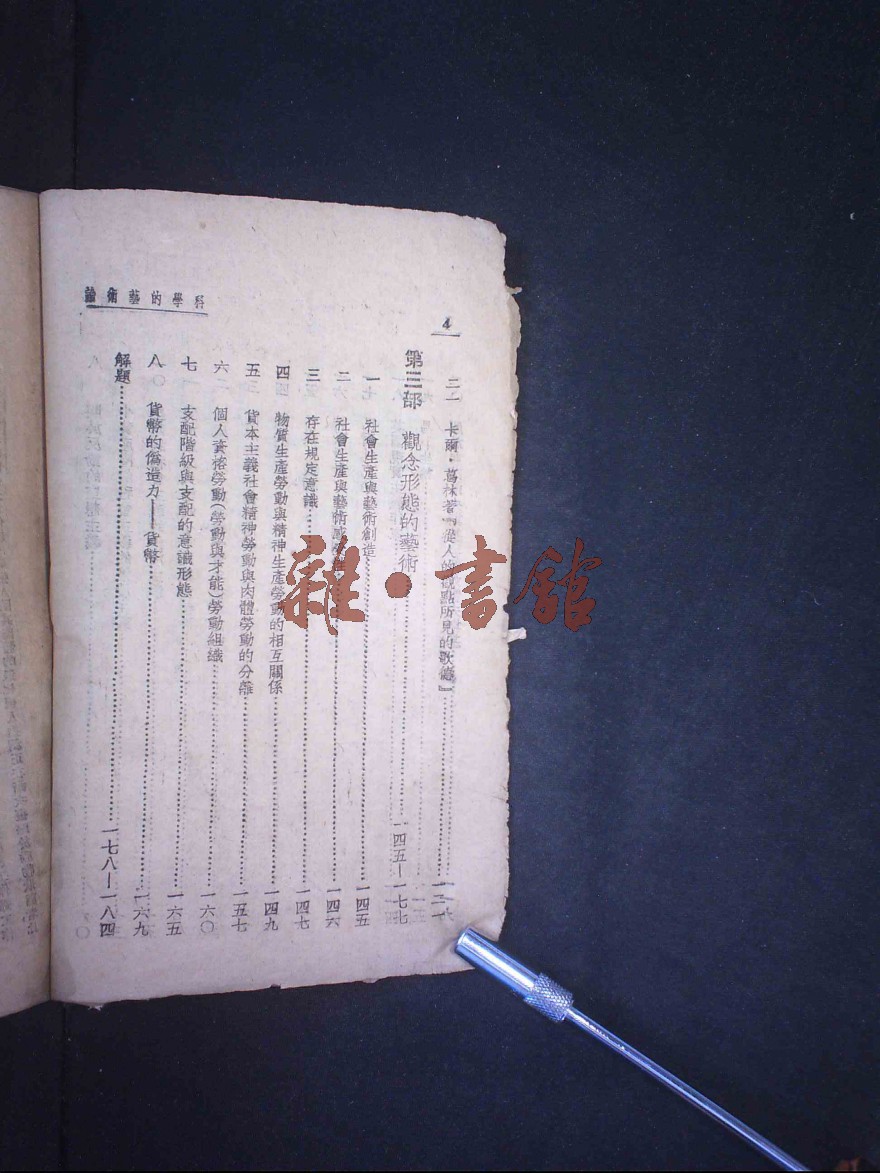 論術藝的學科
4
二一 卡爾·葛林著『從人的觀點所見的歌德』
第三部 觀念形態的藝術……一四五—一七七
一 社會生產與藝術創造……一四五
二 社會生產與藝術感……一四六
三 存在規定意識……一四七
四 物質生產勞動與精神生產勞動的相互關係……一四九
五 資本主義社會精神勞動與肉體勞動的分離……一五七
六 個人資格勞動(勞動與才能)勞動組織……一六〇
七 支配階級與支配的意識形態……一六五
八 貨幣的僞造力——貨幣……一六九
解題……一七八—一八四
雜·書館